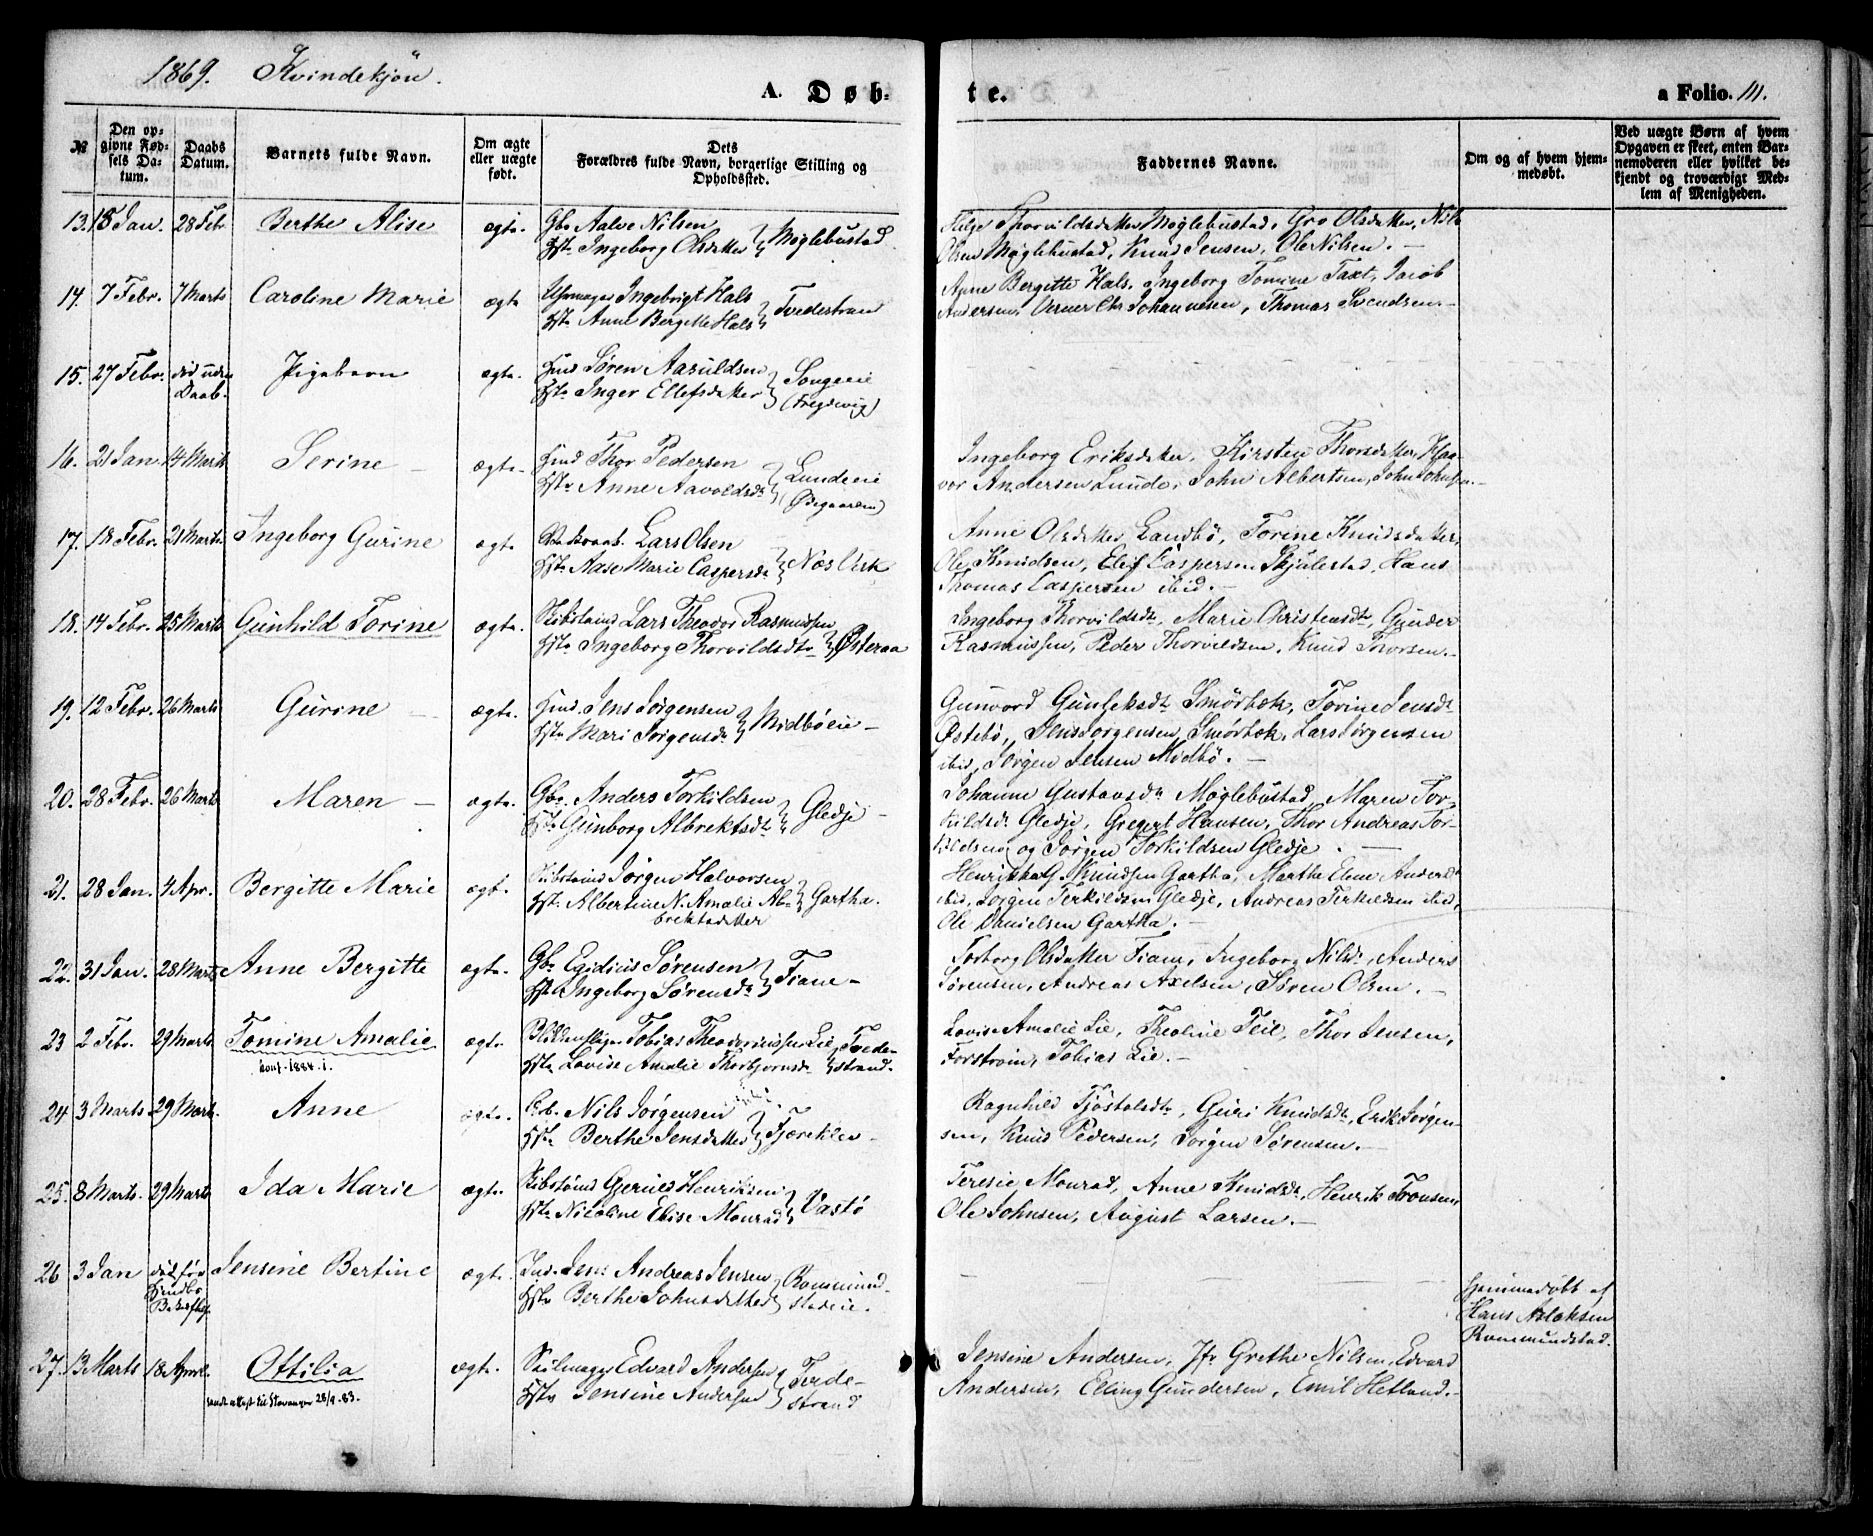 1869. Kvindekjøn.
A. Døb-
te.
a Folio. 111.
№
Den op-
givne Fød-
sels Da-
tum.
Daabs
Datum.
Barnets fulde Navn.
Om ægte
eller uægte
født.
Dets
Forældres fulde Navn, borgerlige Stilling og
Opholdssted.
Faddernes Navne.
Om og af hvem hjem-
medøbt.
Ved uægte Børn af hvem
Opgaven er skeet, enten Bar-
nemoderen eller hvilket be-
kjendt og troværdigt Med-
lem af Menigheden.
13. 15 Jan. 28 Febr Berthe Alise ægte. Gbr Aalve Nilsen
Hst. Ingeborg Olsdatter } Møglebustad
Thorvildsdatter Møglebustad, Gro Olsdatter, Nils
Olsen Møglebustad, Knud Jensen, Ole Nilsen. —
14. 7 Febr. 7 Marts Caroline Marie ægte Uhrmager Ingebrigt Hals
Hst. Anne Bergitte Hals } Tvedestrand
Anne Bergitte Hals, Ingeborg Tomine Taxt, Jacob
Andersen, Verner Chr Johannesen, Thomas Svendsen. —
15. 27 Febr. død uden
Daab. Pigebarn ægte. Hmd Søren Aasuldsen
Hst. Inger Ellefsdatter } Songeeie
16. 21 Jan 14 Marts Serine — ægte. Hmd Thor Pedersen
Hst. Anne Aavoldsdr } Lundeeie
Ingeborg Eriksdatter, Kirsten Thorsdatter, Haa-
vor Andersen Lunde, John Albertsen, John Johnsen. —
17. 18 Febr. 21 Marts. Ingeborg Gurine ægte. Lars Olsen
Hst. Aase Marie Caspersdr } Næs Verk
Anne Olsdatter Landbø, Torine Knudsdatter,
Ole Knudsen, Elef Caspersen Skjulestad, Hans
Thomas Caspersen ibid. —
18. 14 Febr. 25 Marts Gunhild Torine ægte. Skibstømd Lars Theodor Rasmussen
Hst. Ingeborg Thorvildsdtr } Østeraa
Ingeborg Thorvildsdtr, Marie Christensdtr, Gunder
Rasmussen, Peder Thorvildsen, Knud Thorsen. —
19. 12 Febr. 26 Marts Gurine — ægte. Hmd. Jens Jørgensen
Hst. Mari Jørgensdr } Midbøeie —
Gunvord Gunleksdtr Smørbæk, Torine Jensdtr
Østebø, Jens Jørgensen, Smørbæk, Lars Jørgensen
ibid, Jørgen Jensen Midbø. —
20. 28 Febr. 26 Marts Maren — ægte. Gbr. Anders Torkildsen
Hst. Gunborg Albrektsdtr } Gledje —
Johanne Gustavsdtr Møglebustad, Maren Tor-
kildsdr Gledje, Gregert Hansen, Thor Andreas Tor-
kildsen og Jørgen Torkildsen Gledje. —
21. 28 Jan. 4 Apr. Bergitte Marie ægt. Skibstømd Jørgen Halvorsen
Hst. Albertine N. Amalie Al-
brektsdatter } Gartha.
G. Knudsen Gartha, Marthe Elene Andersdr
ibid, Jørgen Terkildsen Gledje, Andreas Terkildsen ibid,
Ole Danielsen Gartha.
22. 31 Jan. 28 Marts Anne Bergitte ægte. Gbr Egidius Sørensen
Hst. Ingeborg Sørensdr } Fiane —
Torborg Olsdatter Fiane, Ingeborg Nilsdr, Anders
Sørensen, Andreas Axelsen, Søren Olsen. —
23 2 Febr. 29 Marts Tomine Amalie
konf. 1884. i.
ægte. Tobias Theodoriussen Lie
Hst. Lovise Amalie Thorbjørnsdr } Tvede-
strand.
Lovise Amalie Lie, Theoline Teie, Thor Jensen,
Forstrøm, Tobias Lie. —
24 3 Marts 29 Marts. Anne ægte. Nils Jørgensen
Hst. Berthe Jensdatter } Fjæreklev —
Ragnhild Tjøstolsdtr, Guri Knudsdtr, Erik Jørgen-
sen, Knud Pedersen, Jørgen Sørensen. —
25. 8 Marts. 29 Marts Ida Marie ægte. Skibstømd Gerued Henriksen
Hst. Nicoline Elise Monrad } Vastø
Teresie Monrad, Anne Knudsdr, Henrik Tronsen,
Ole Johnsen, August Larsen. —
26 3 Jan død før
Jensine Bertine ægte. Ind. Jens Andreas Jensen
Hst. Berthe Johnsdatter } Romund-
stadeie.
Hjemmedøbt af
Hans Aslaksen
Rommundstad.
27. 13 Marts 18 April. Ottilia
sendt attest til Stavanger 28/9. 83.
ægt. Seilmager Edvard Andersen
Hst. Jensine Andersen } Tvede-
strand
Jensine Andersen, Jfr Grethe Nilsen, Edvard
Andersen, Elling Gundersen, Emil Hetland. —